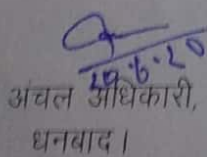 29.6.20
अंचल अधिकारी,
धनबाद।